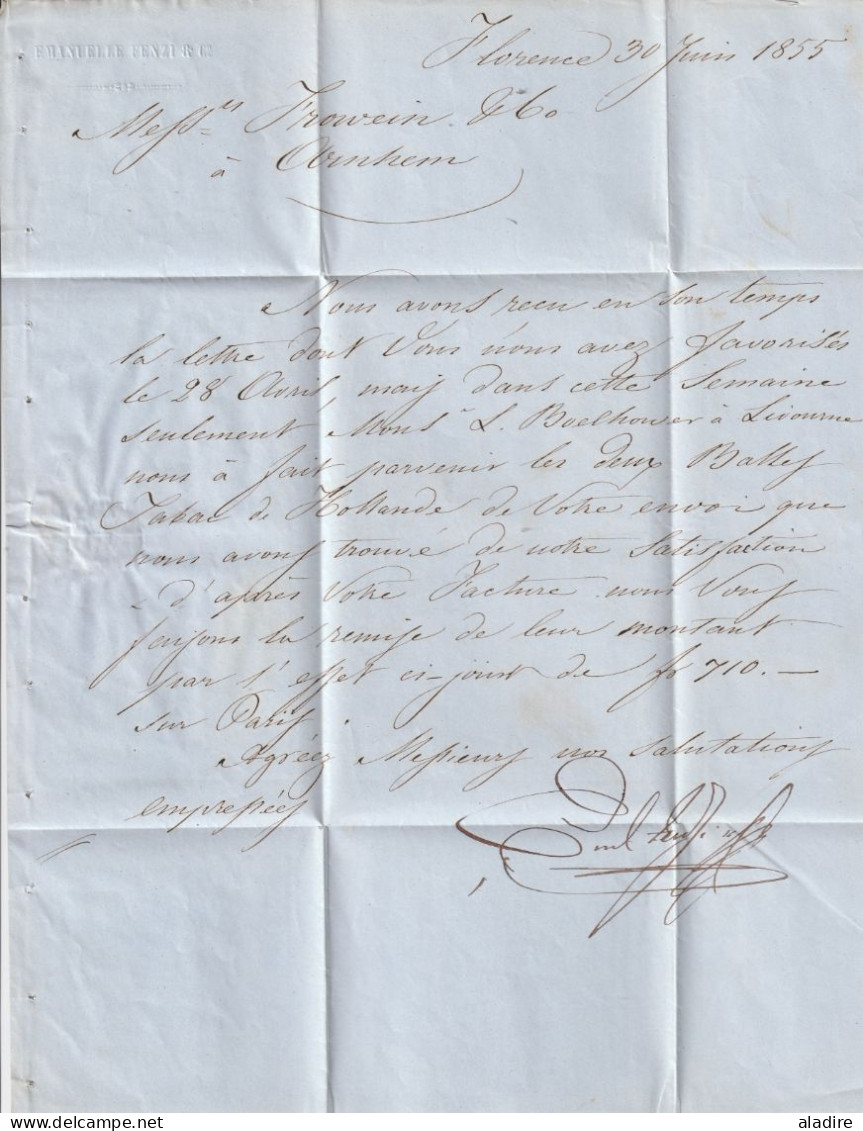 EMANUELLE FENZI & Cº
Florence 30 Juin 1855
Messrs Frowein & Co
à Arnhem
Nous avons recu en son temps
la lettre dont Vous nous avez favorisés
le 28 Avril, mais dans cette Semaine
seulement Monsr L. Boelhower à Livourne
nous à fait parvenir les deux Balles
Tabac de Hollande de Votre envoi que
nous avons trouvé de notre Satisfaction
- d'après Votre Facture nous Vous
faisons la remise de leur montant
par l'effet ci-joint de fr 710.—
sur Paris.
Agréez Messieurs nos Salutations
empressées
delcampe.net
aladire